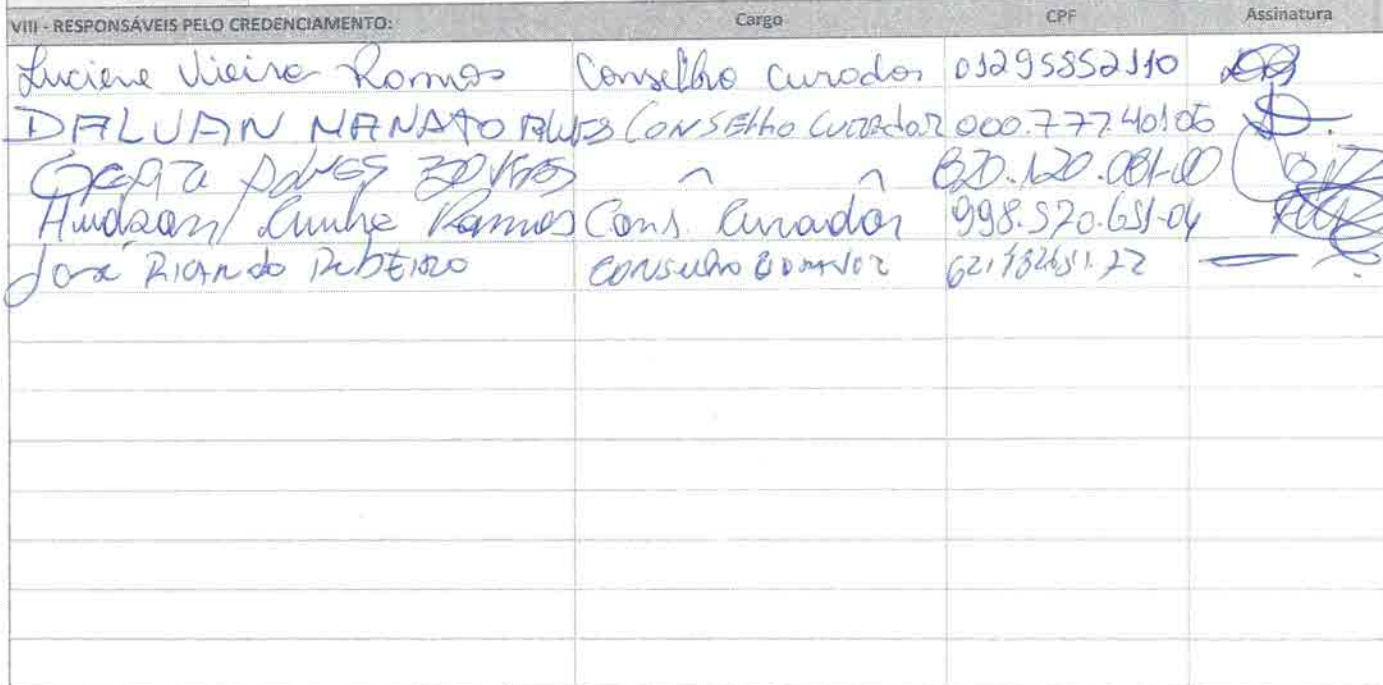 VIII - RESPONSÁVEIS PELO CREDENCIAMENTO: Cargo CPF Assinatura
Luciene Vieira Ramos Conselho Curador 01295852110
DALVAN NANATO ALVES CONSELHO CURADOR 000.777.40106
ALVES 820.120.081-00
Hudson Cunha Ramos Cons. Curador 998.570.651-04
José RICARDO RIBEIRO CONSELHO